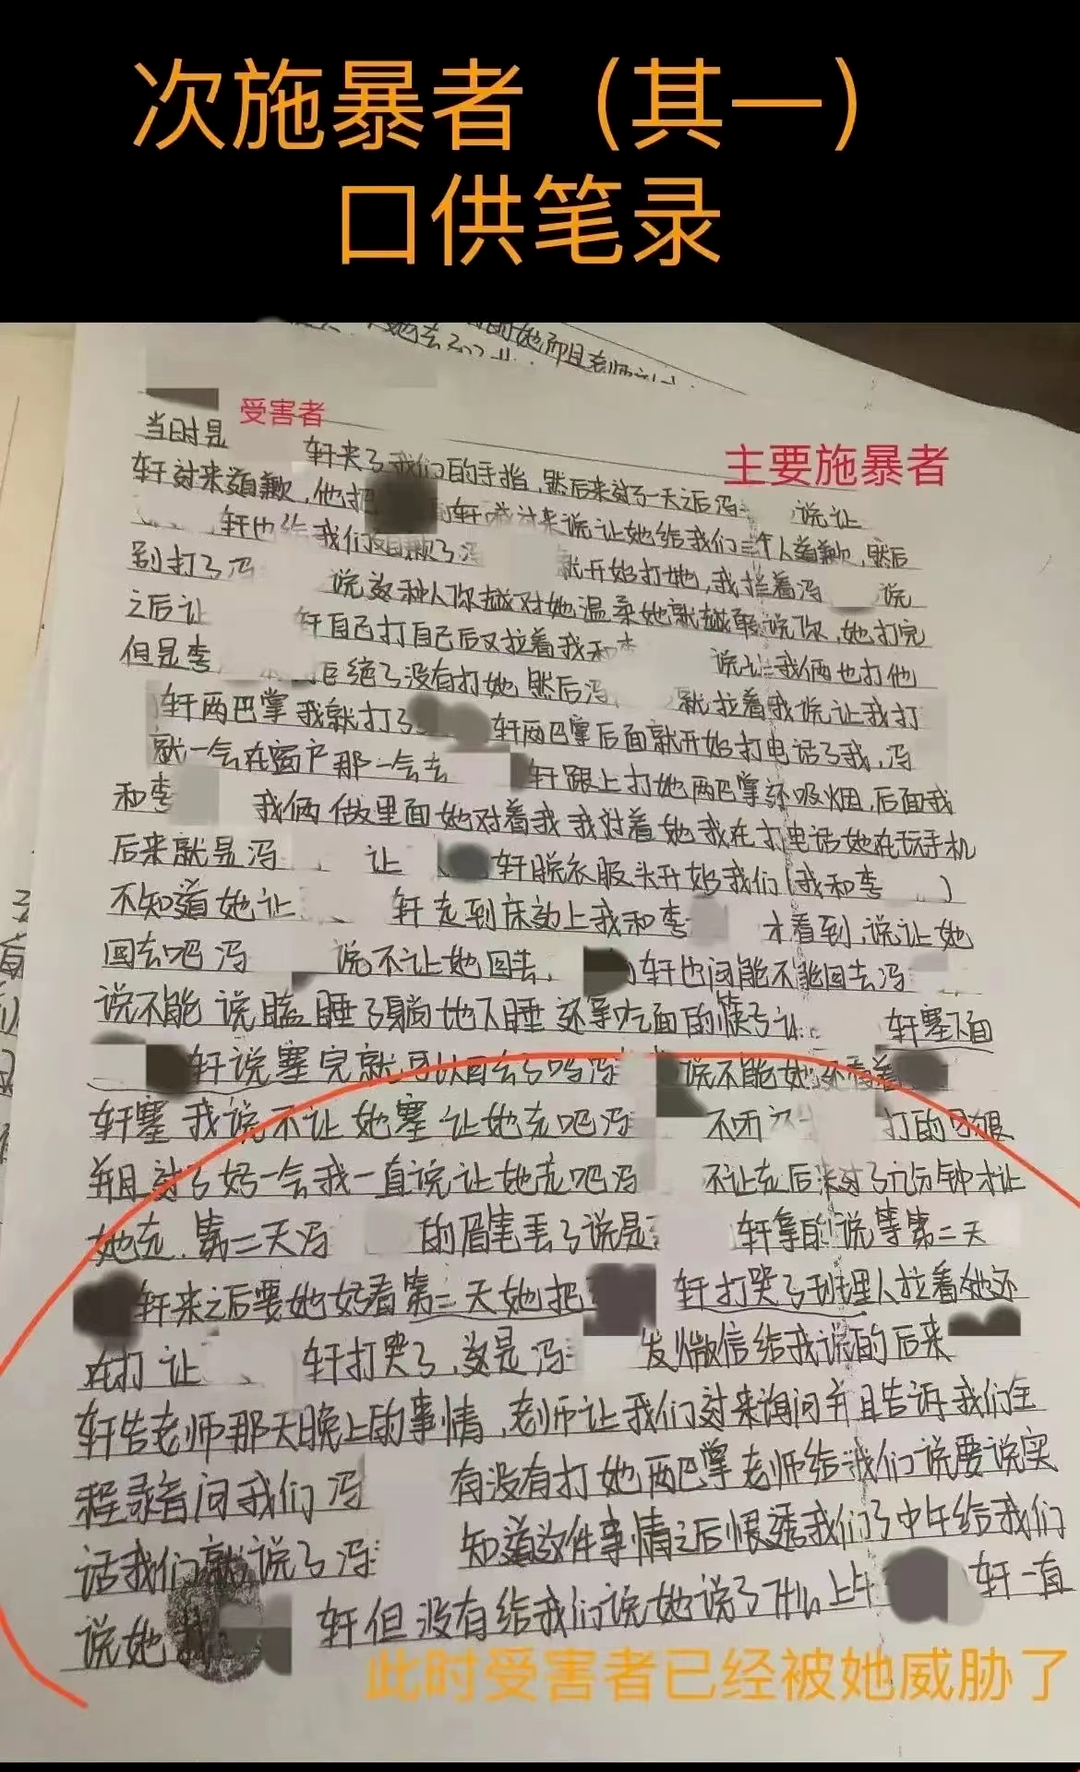 次施暴者（其一）
口供笔录
受害者
主要施暴者
当时是 轩夹了我们的手指，然后来到了一天之后冯 说让
轩过来道歉，他把 轩喊过来说让她给我们三个人道歉，然后
轩也给我们道歉了冯 就开始打她，我拦着冯 说
别打了冯 说这种人你越对她温柔她就越 说你，她打完
之后让 轩自己打自己后又拉着我和李 说让我俩也打他
但是李 拒绝了没有打她，然后冯 就拉着我说让我打
轩两巴掌 我就打了 轩两巴掌后面就开始打电话了我，冯
就一会在窗户那一会去 轩跟上打她两巴掌还吸烟，后面我
和李 我俩 做里面她对着我 我对着她 我在打电话她在玩手机
后来就是冯 让 轩脱衣服 开始我们（我和李 ）
不知道她让 轩走到床边上我和李 才看到，说让她
回去吧 冯 说不让她回去， 轩也问能不能回去冯
说不能 说瞌睡了躺地下睡 还拿吃面的筷子让 轩塞下面
轩说塞完就可以回去了吗冯 说不能她还看着
轩塞 我说不让她塞 让她走吧冯 不听 打的
并且过了好一会我一直说让她走吧冯 不让走后来过了几分钟才让
她走，第二天冯 的眉笔丢了说是 轩拿的说等第二天
轩来之后要她好看第二天她把 轩打哭了班里人拉着她还
在打 让 轩打哭了，这是冯 发微信给我说的后来
轩告老师那天晚上的事情，老师让我们过来询问并且告诉我们全
程录音问我们冯 有没有打她两巴掌老师给我们说要说实
话我们就说了冯 知道这件事情之后恨透我们了中午给我们
说她 轩但没有给我们说她说了什么上午 轩一直
此时受害者已经被她威胁了